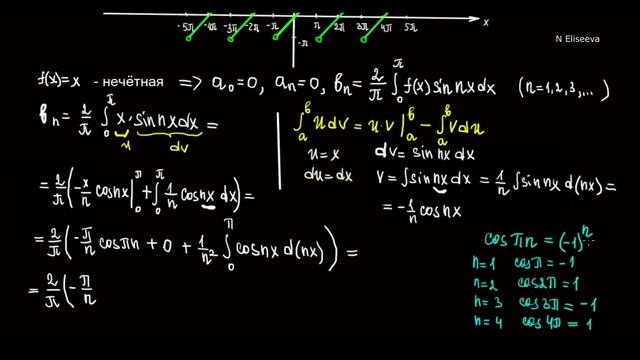 -5π -4π -3π -2π -π π 2π 3π 4π 5π x
-π
N Eliseeva
f(x)=x - нечётная => a₀=0, aₙ=0, bₙ = 2/π ∫₀^π f(x) sin nx dx (n=1,2,3,...)
bₙ = 2/π ∫₀^π x · sin nx dx =
u dv
∫ₐᵇ u dv = u·v |ₐᵇ − ∫ₐᵇ v du
u = x dv = sin nx dx
du = dx v = ∫ sin nx dx = 1/n ∫ sin nx d(nx) =
= −1/n cos nx
= 2/π (−x/n cos nx |₀^π + ∫₀^π 1/n cos nx dx) =
= 2/π (−π/n cos πn + 0 + 1/n² ∫₀^π cos nx d(nx)) =
= 2/π (−π/n
cos πn = (−1)ⁿ
n=1 cos π = −1
n=2 cos 2π = 1
n=3 cos 3π = −1
n=4 cos 4π = 1